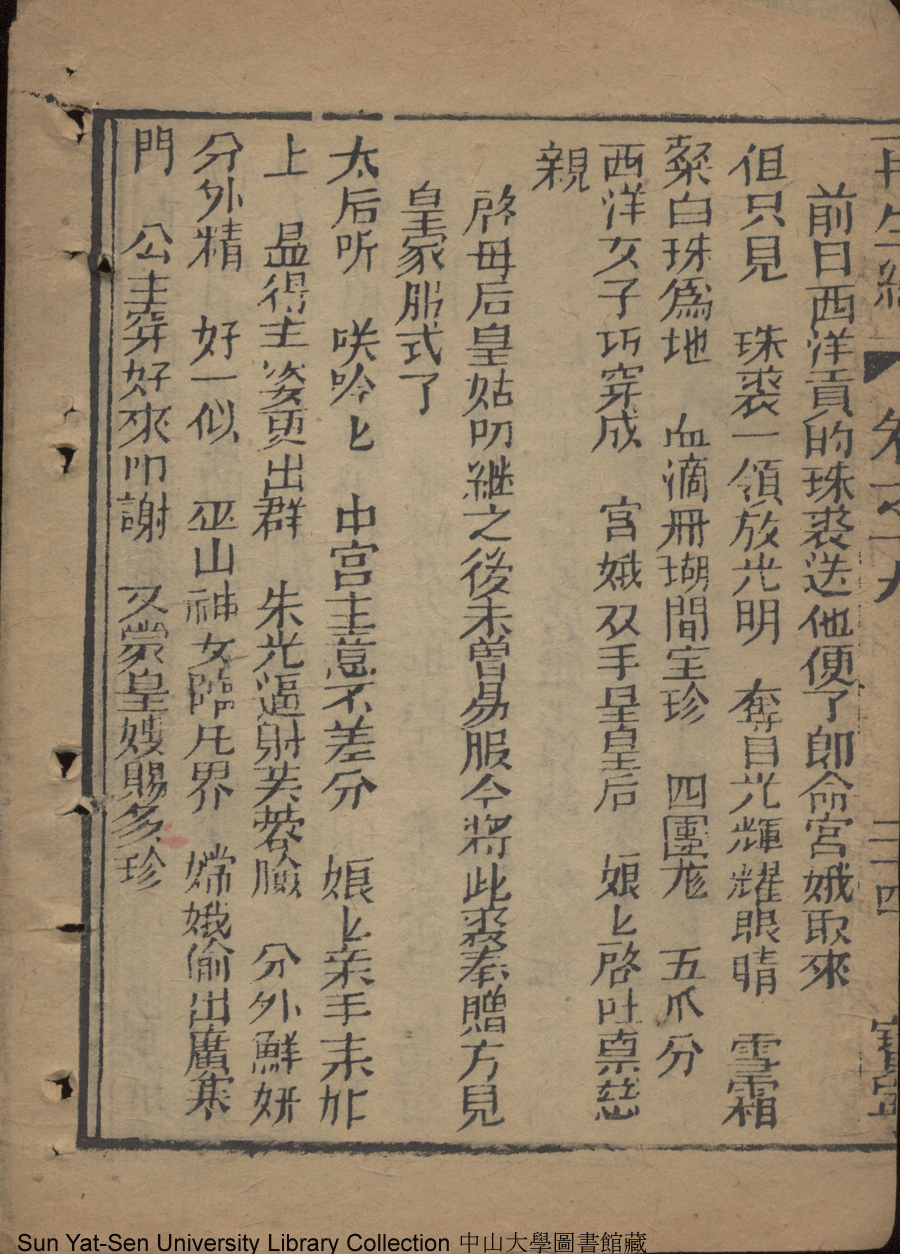 再生緣 卷之十九 三十四 寶寧
前日西洋貢的珠裘送他便了即命宮娥取來
伹只見 珠裘一領放光明 奪目光輝耀眼晴 雪霜
粲白珠爲地 血滴珊瑚間宝珍 四團尨 五爪分
西洋女子巧穿成 宮娥双手呈皇后 娘上啓吐禀慈
親
啓母后皇姑叨継之後未曽易服今將此裘奉贈方見
皇家服式了
太后听 咲吟匕 中宮主意不差分 娘上亲手来加
上 显得主姿更出群 朱光逼射芙蓉臉 分外鮮妍
分外精 好一似 巫山神女臨凢界 嫦娥偷出廣寒
門 公主穿好來叩謝 又蒙皇嫂賜多珍
Sun Yat-Sen University Library Collection 中山大學圖書館藏